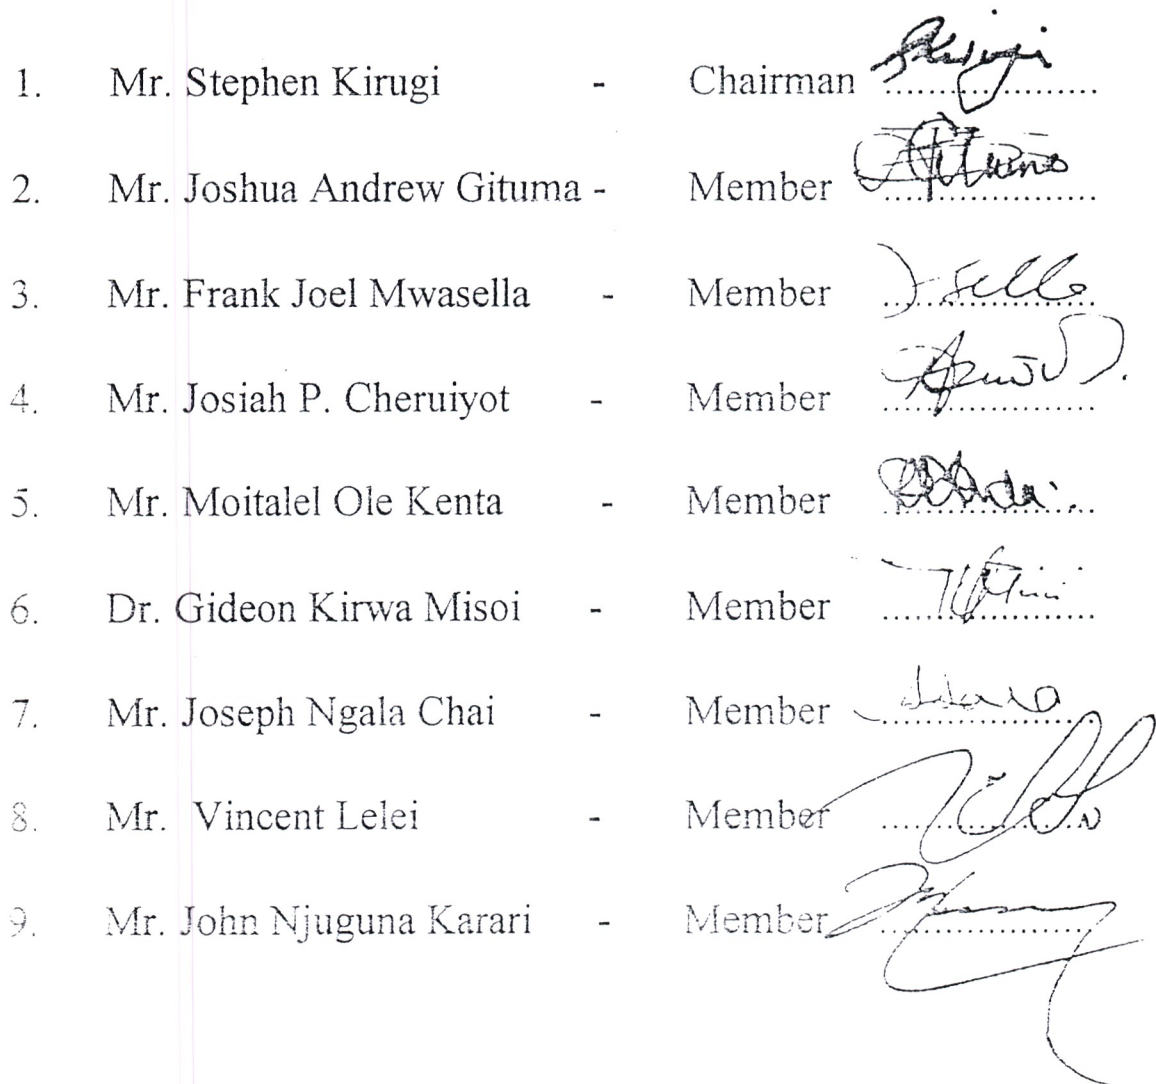 1. Mr. Stephen Kirugi - Chairman ....................
2. Mr. Joshua Andrew Gituma - Member ....................
3. Mr. Frank Joel Mwasella - Member ....................
4. Mr. Josiah P. Cheruiyot - Member ....................
5. Mr. Moitalel Ole Kenta - Member ....................
6. Dr. Gideon Kirwa Misoi - Member ....................
7. Mr. Joseph Ngala Chai - Member ....................
8. Mr. Vincent Lelei - Member ....................
9. Mr. John Njuguna Karari - Member ....................